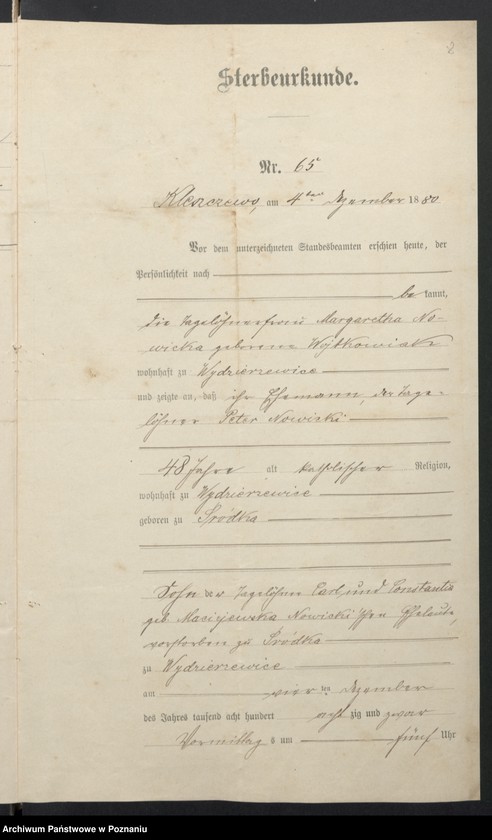 2
Sterbeurkunde.
Nr. 65
Kleszczewo, am 4ten Dezember 1880
Vor dem unterzeichneten Standesbeamten erschien heute, der
Persönlichkeit nach
be kannt,
die Tagelöhnerfrau Margaretha No-
wicka geborene Wojtkowiak
wohnhaft zu Wydzierzewice
und zeigte an, daß ihr Ehemann, der Tage-
löhner Peter Nowicki
48 Jahre alt katholischer Religion,
wohnhaft zu Wydzierzewice
geboren zu Śródka
Sohn der Tagelöhner Carl und Constantia
geb Maciejewska Nowicki'schen Eheleute,
verstorben zu Śródka
zu Wydzierzewice
am vier ten Dezember
des Jahres tausend acht hundert acht zig und zwar
Vormittag s um fünf Uhr
Archiwum Państwowe w Poznaniu